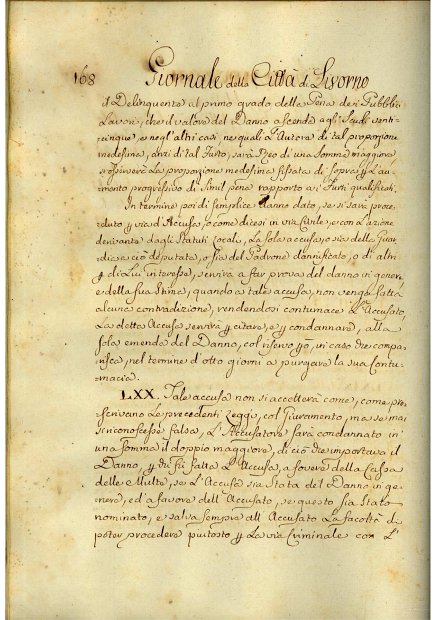 168 Giornale della Città di Livorno
il Delinquente al primo grado della Pena dei Pubblici
Lavori, che il valore del Danno ascenda agli Scudi venti-
cinque, e negl'altri casi ne quali L'Autore di tal proporzione
medesima, anzi di tal Furto, sarà Reo di una Somma maggiore
si osserverà La proporzione medesima fissata di sopra L'au-
mento progressivo di simil pena rapporto a i Furti qualificati.
In termine poi di semplice Danno dato, se si sarà proce-
duto via d'Accusa, o come dicesi in via Civile, e con L'azione
derivante dagli Statuti Locali, La sola accusa, o sia della Guar-
dia a ciò deputata, o sia del Padrone dannificato, o di altri
di Lui interesse, servirà a far prova del danno in genere
e della sua Stima, quando a tale accusa, non venga fatta
alcuna contradizione, rendendosi contumace L'Accusato,
La detta Accusa servirà citare, e condannare, alla
sola emenda del Danno, col riservo in caso che compa-
risca, nel termine d'otto giorni a purgare la sua contu-
macia.
LXX. Tale accusa non si accetterà come, come pre-
scrivano Le precedenti Leggi, col Giuramento, ma se mai
si riconoscesse falsa, L'Accusatore sarà condannato in
una somma il doppio maggiore, di ciò che importava il
Danno, fatta L'Accusa, a favore della Cassa
delle Multe, se L'Accusa sia Stata del Danno in ge-
nere, ed a favore dell'Accusato, se questo sia Stato
nominato, e salva sempre all'Accusato La facoltà di
poter procedere piuttosto La via Criminale con L'